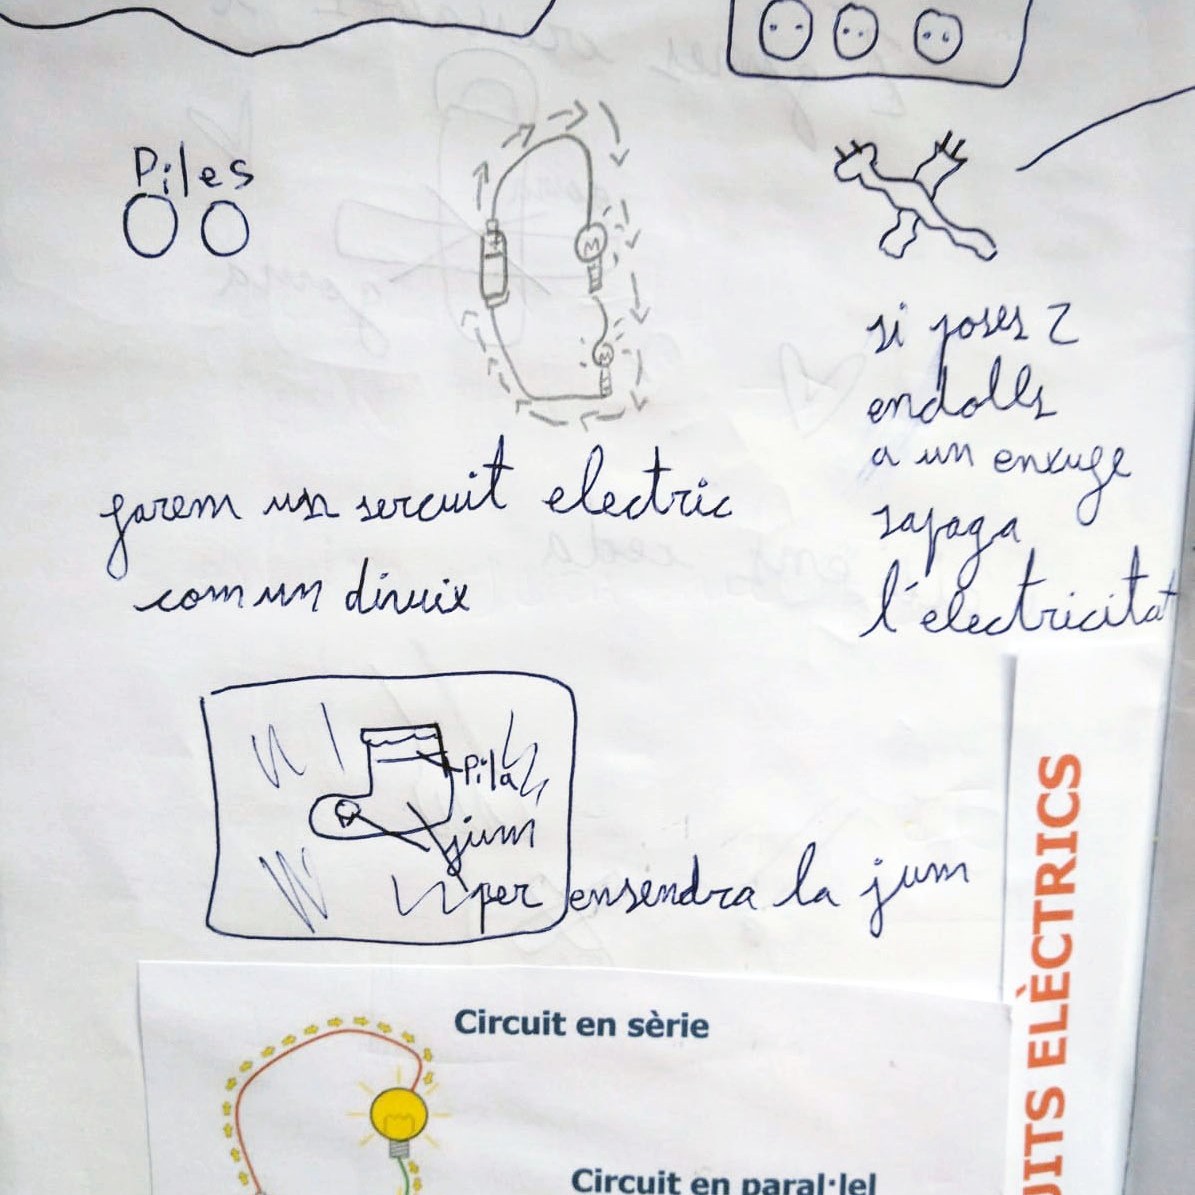 Piles
si poses 2
endolls
a un enxufe
sapaga
l'electricitat
farem un sercuit electric
com un divuix
Pila
jum
per ensendra la jum
Circuit en sèrie
Circuit en paral·lel
UITS ELÈCTRICS